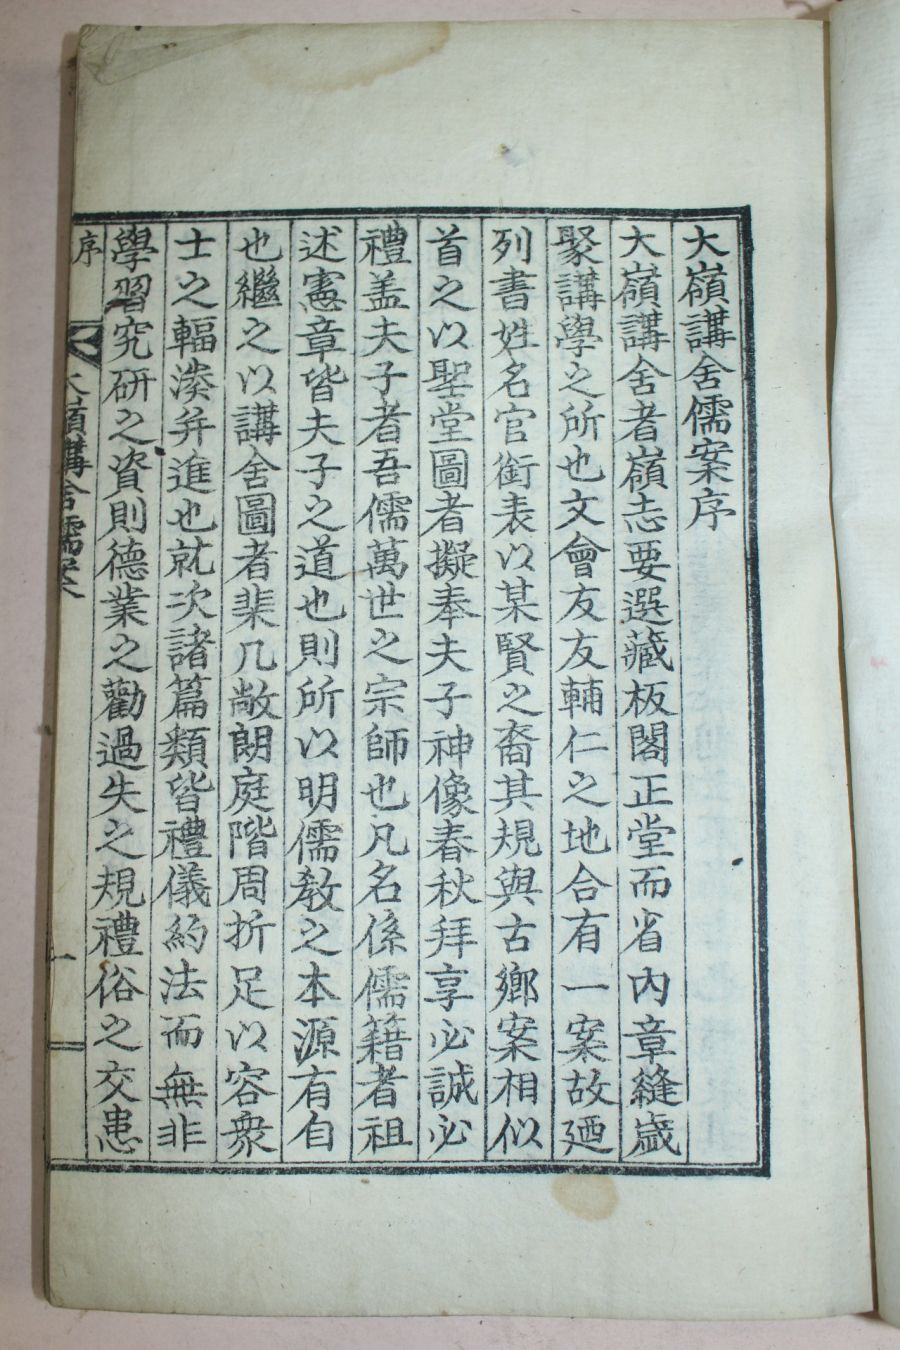 大嶺講舍儒案序
大嶺講舍者嶺志要選藏板閣正堂而省內章縫歲
聚講學之所也文會友友輔仁之地合有一案故廼
列書姓名官銜表以某賢之裔其規與古鄉案相似
首之以聖堂圖者擬奉夫子神像春秋拜享必誠必
禮盖夫子者吾儒萬世之宗師也凡名係儒籍者祖
述憲章皆夫子之道也則所以明儒教之本源有自
也繼之以講舍圖者棐几敞朗庭階周折足以容衆
士之輻湊并進也就次諸篇類皆禮儀約法而無非
學習究研之資則德業之勸過失之規禮俗之交患
序
大嶺講舍儒案
一